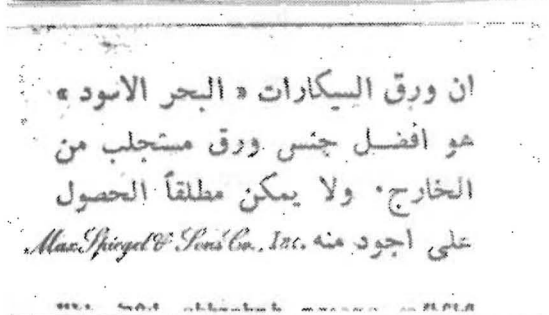 ان ورق السيكارات « البحر الاسود »
هو افضل جنس ورق مستجلب من
الخارج. ولا يمكن مطلقاً الحصول
على اجود منه .Max Spiegel & Sons Co., Inc